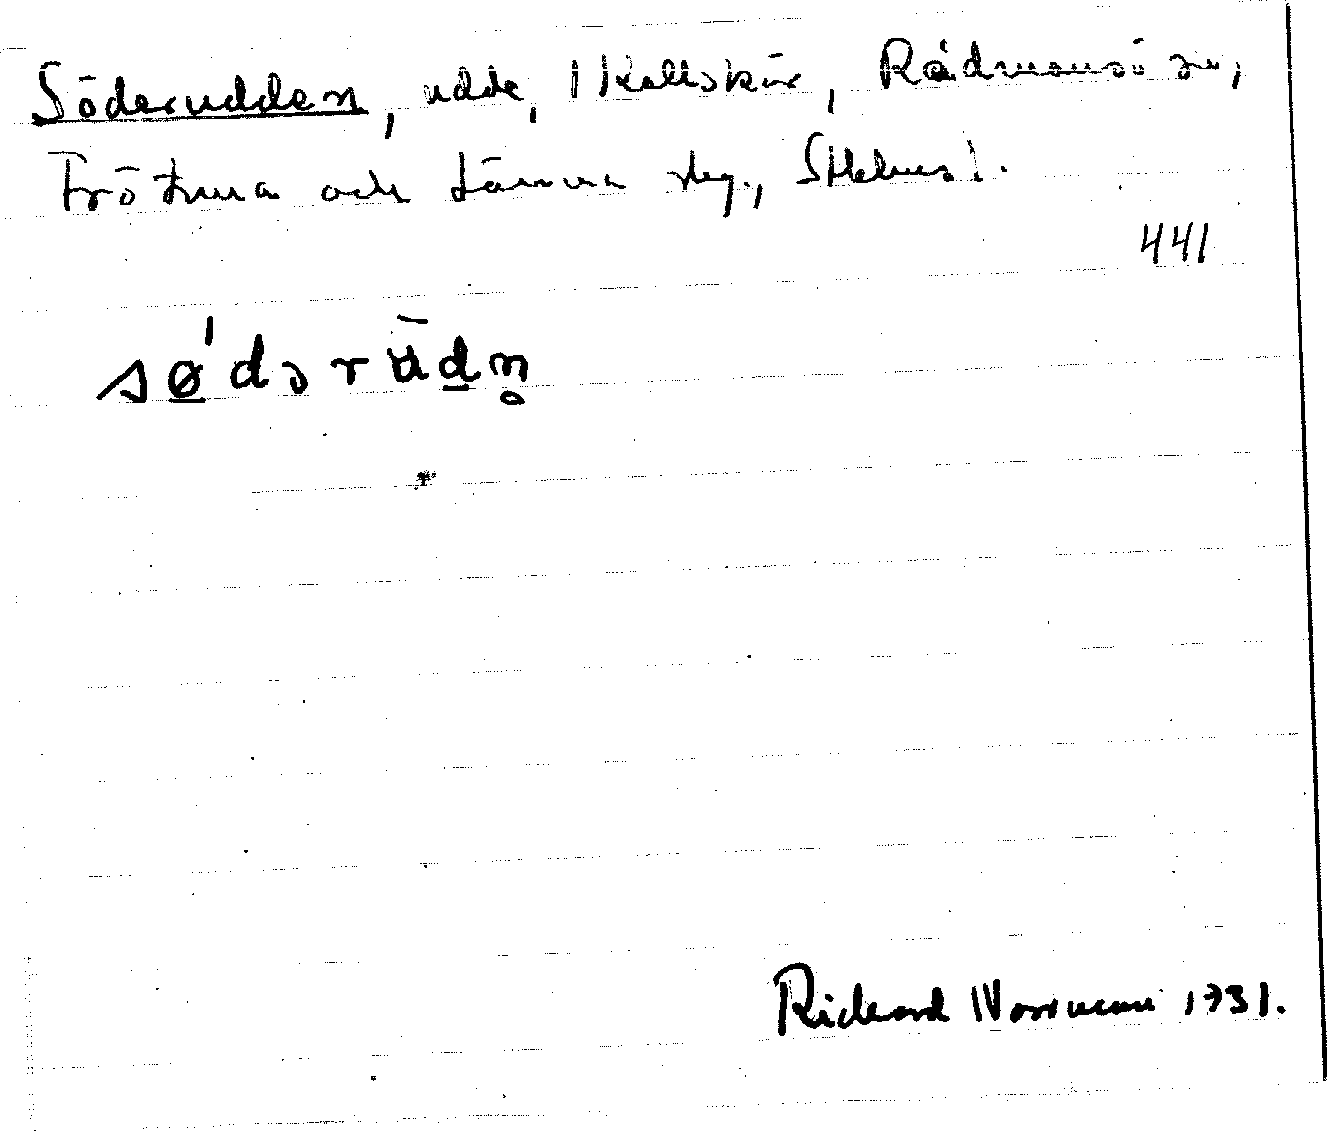 Söderudden, udde, I Kallskär, Rådmansö sn,
Frötuna och Länna slg., Sthlms l.
441
sø'dərūdn̥
Rickard Norrman 1931.